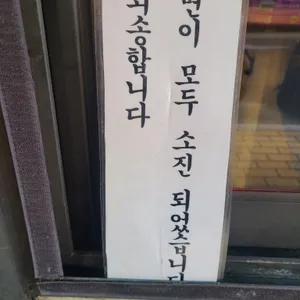 면이 모두 소진 되었습니다
죄송합니다